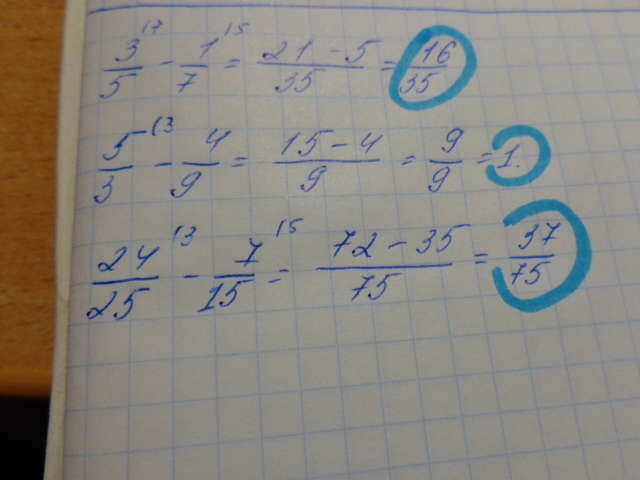 3/5 \17 - 1/7 \15 = (21 - 5)/35 = 16/35
5/3 \13 - 4/9 = (15 - 4)/9 = 9/9 = 1.
24/25 \13 - 7/15 \15 = (72 - 35)/75 = 37/75